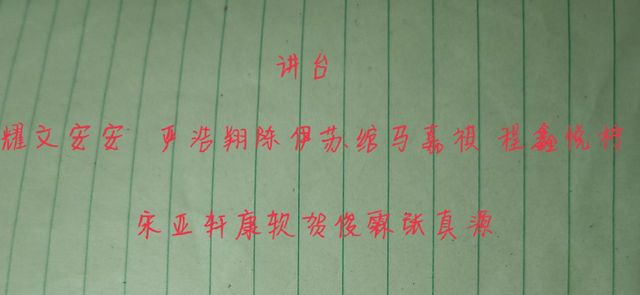 讲台
耀文安安 严浩翔陈伊苏绾马嘉祺 程鑫悦柠
宋亚轩康软贺俊霖张真源